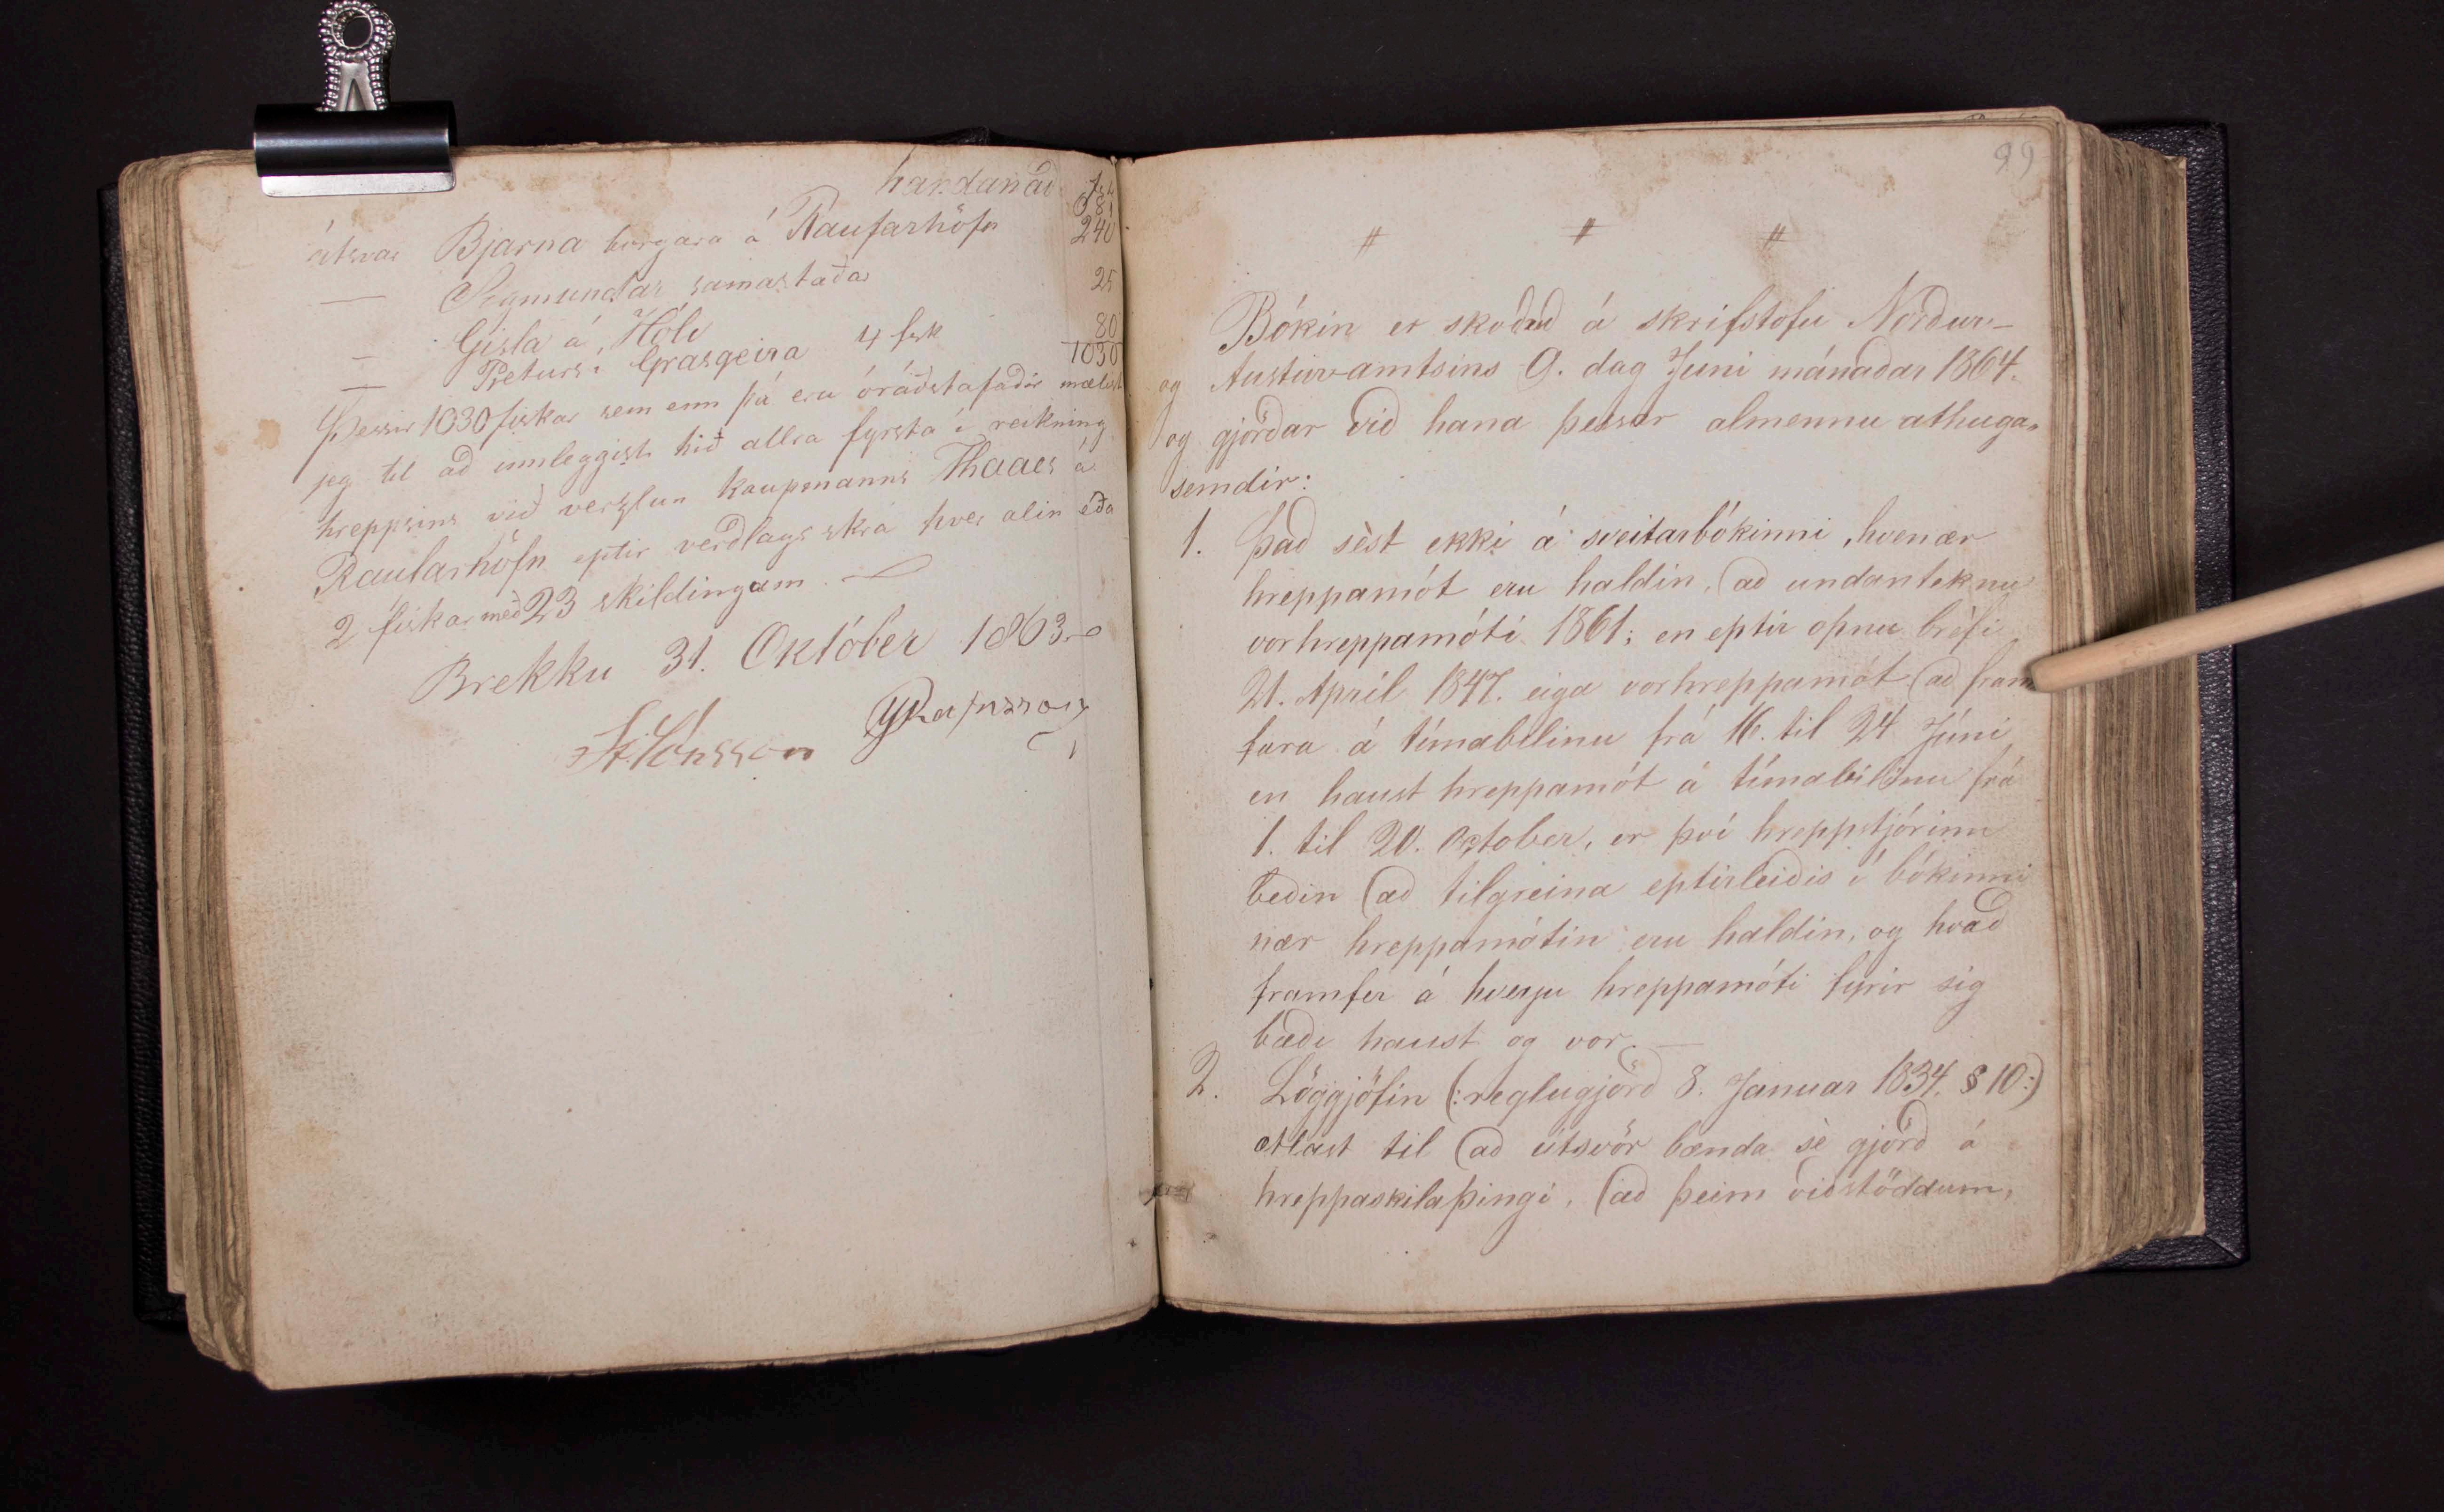 handanað
681
útsvar Bjarna borgara á Raufarhöfn 240
— Sigmundar samastaðar 25
— Gísla á Hóli 80
— Pieturs í Grasgeira 4 fsk 1030
Þessir 1030 fiskar sem enn þá eru óráðstafaðir mælist
jeg til að innleggist hið allra fyrsta í reikning
hreppsins við verzlun kaupmanns Thaaes á
Raufarhöfn eptir verðlags skrá hver alin eða
2 fiskar með 23 skildingum.
Brekku 31. Október 1863
St. Jónsson
99
# # #
Bókin er skoðud á skrifstofu Norður-
og Austuramtsins 9. dag Juni mánaðar 1864.
og gjörðar við hana þessar almennu athuga-
semdir:
1. Það sèst ekki á sveitarbókinni, hvenær
hreppamót eru haldin, að undanteknu
vorhreppamóti 1861; en eptir opnu brèfi
21. Apríl 1847. eiga vorhreppamót að fram
fara á tímabilinu frá 16. til 24 Júni
en haust hreppamót á tímabilinu frá
1. til 20. October, er því hreppstjórinn
beðin að tilgreina eptirleiðis í bókinni
nær hreppamótin eru haldin, og hvað
framfer á hverju hreppamóti fyrir sig
bæði haust og vor. —
2. Löggjöfin (: reglugjörð 8. Januar 1834. § 10:)
ætlast til að útsvör bænda sè gjörð á
hreppaskilaþingi, að þeim viðstöddum,